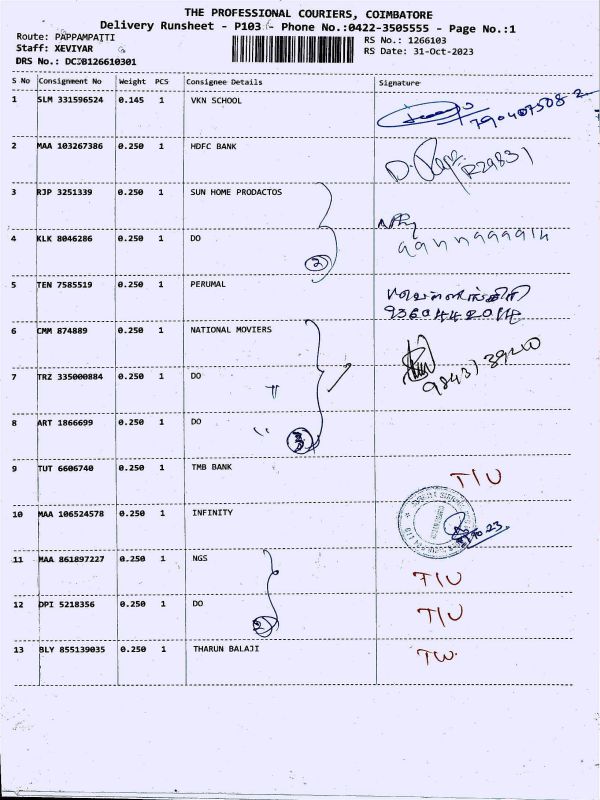 THE PROFESSIONAL COURIERS, COIMBATORE
Delivery Runsheet - P103 - Phone No.:0422-3505555 - Page No.:1
Route: PAPPAMPAITI
RS No.: 1266103
Staff: XEVIYAR
RS Date: 31-Oct-2023
DRS No.: DCDB126610301
S No Consignment No Weight PCS Consignee Details Signature
1 SLM 331596524 0.145 1 VKN SCHOOL
2 MAA 103267386 0.250 1 HDFC BANK
3 RJP 3251339 0.250 1 SUN HOME PRODACTOS
4 KLK 8046286 0.250 1 DO
2
5 TEN 7585519 0.250 1 PERUMAL
6 CMM 874889 0.250 1 NATIONAL MOVIERS
7 TRZ 335000884 0.250 1 DO
8 ART 1866699 0.250 1 DO
3
9 TUT 6606740 0.250 1 TMB BANK T/U
10 MAA 106524578 0.250 1 INFINITY
11 MAA 861897227 0.250 1 NGS T/U
12 DPI 5218356 0.250 1 DO T/U
2
13 BLY 855139035 0.250 1 THARUN BALAJI